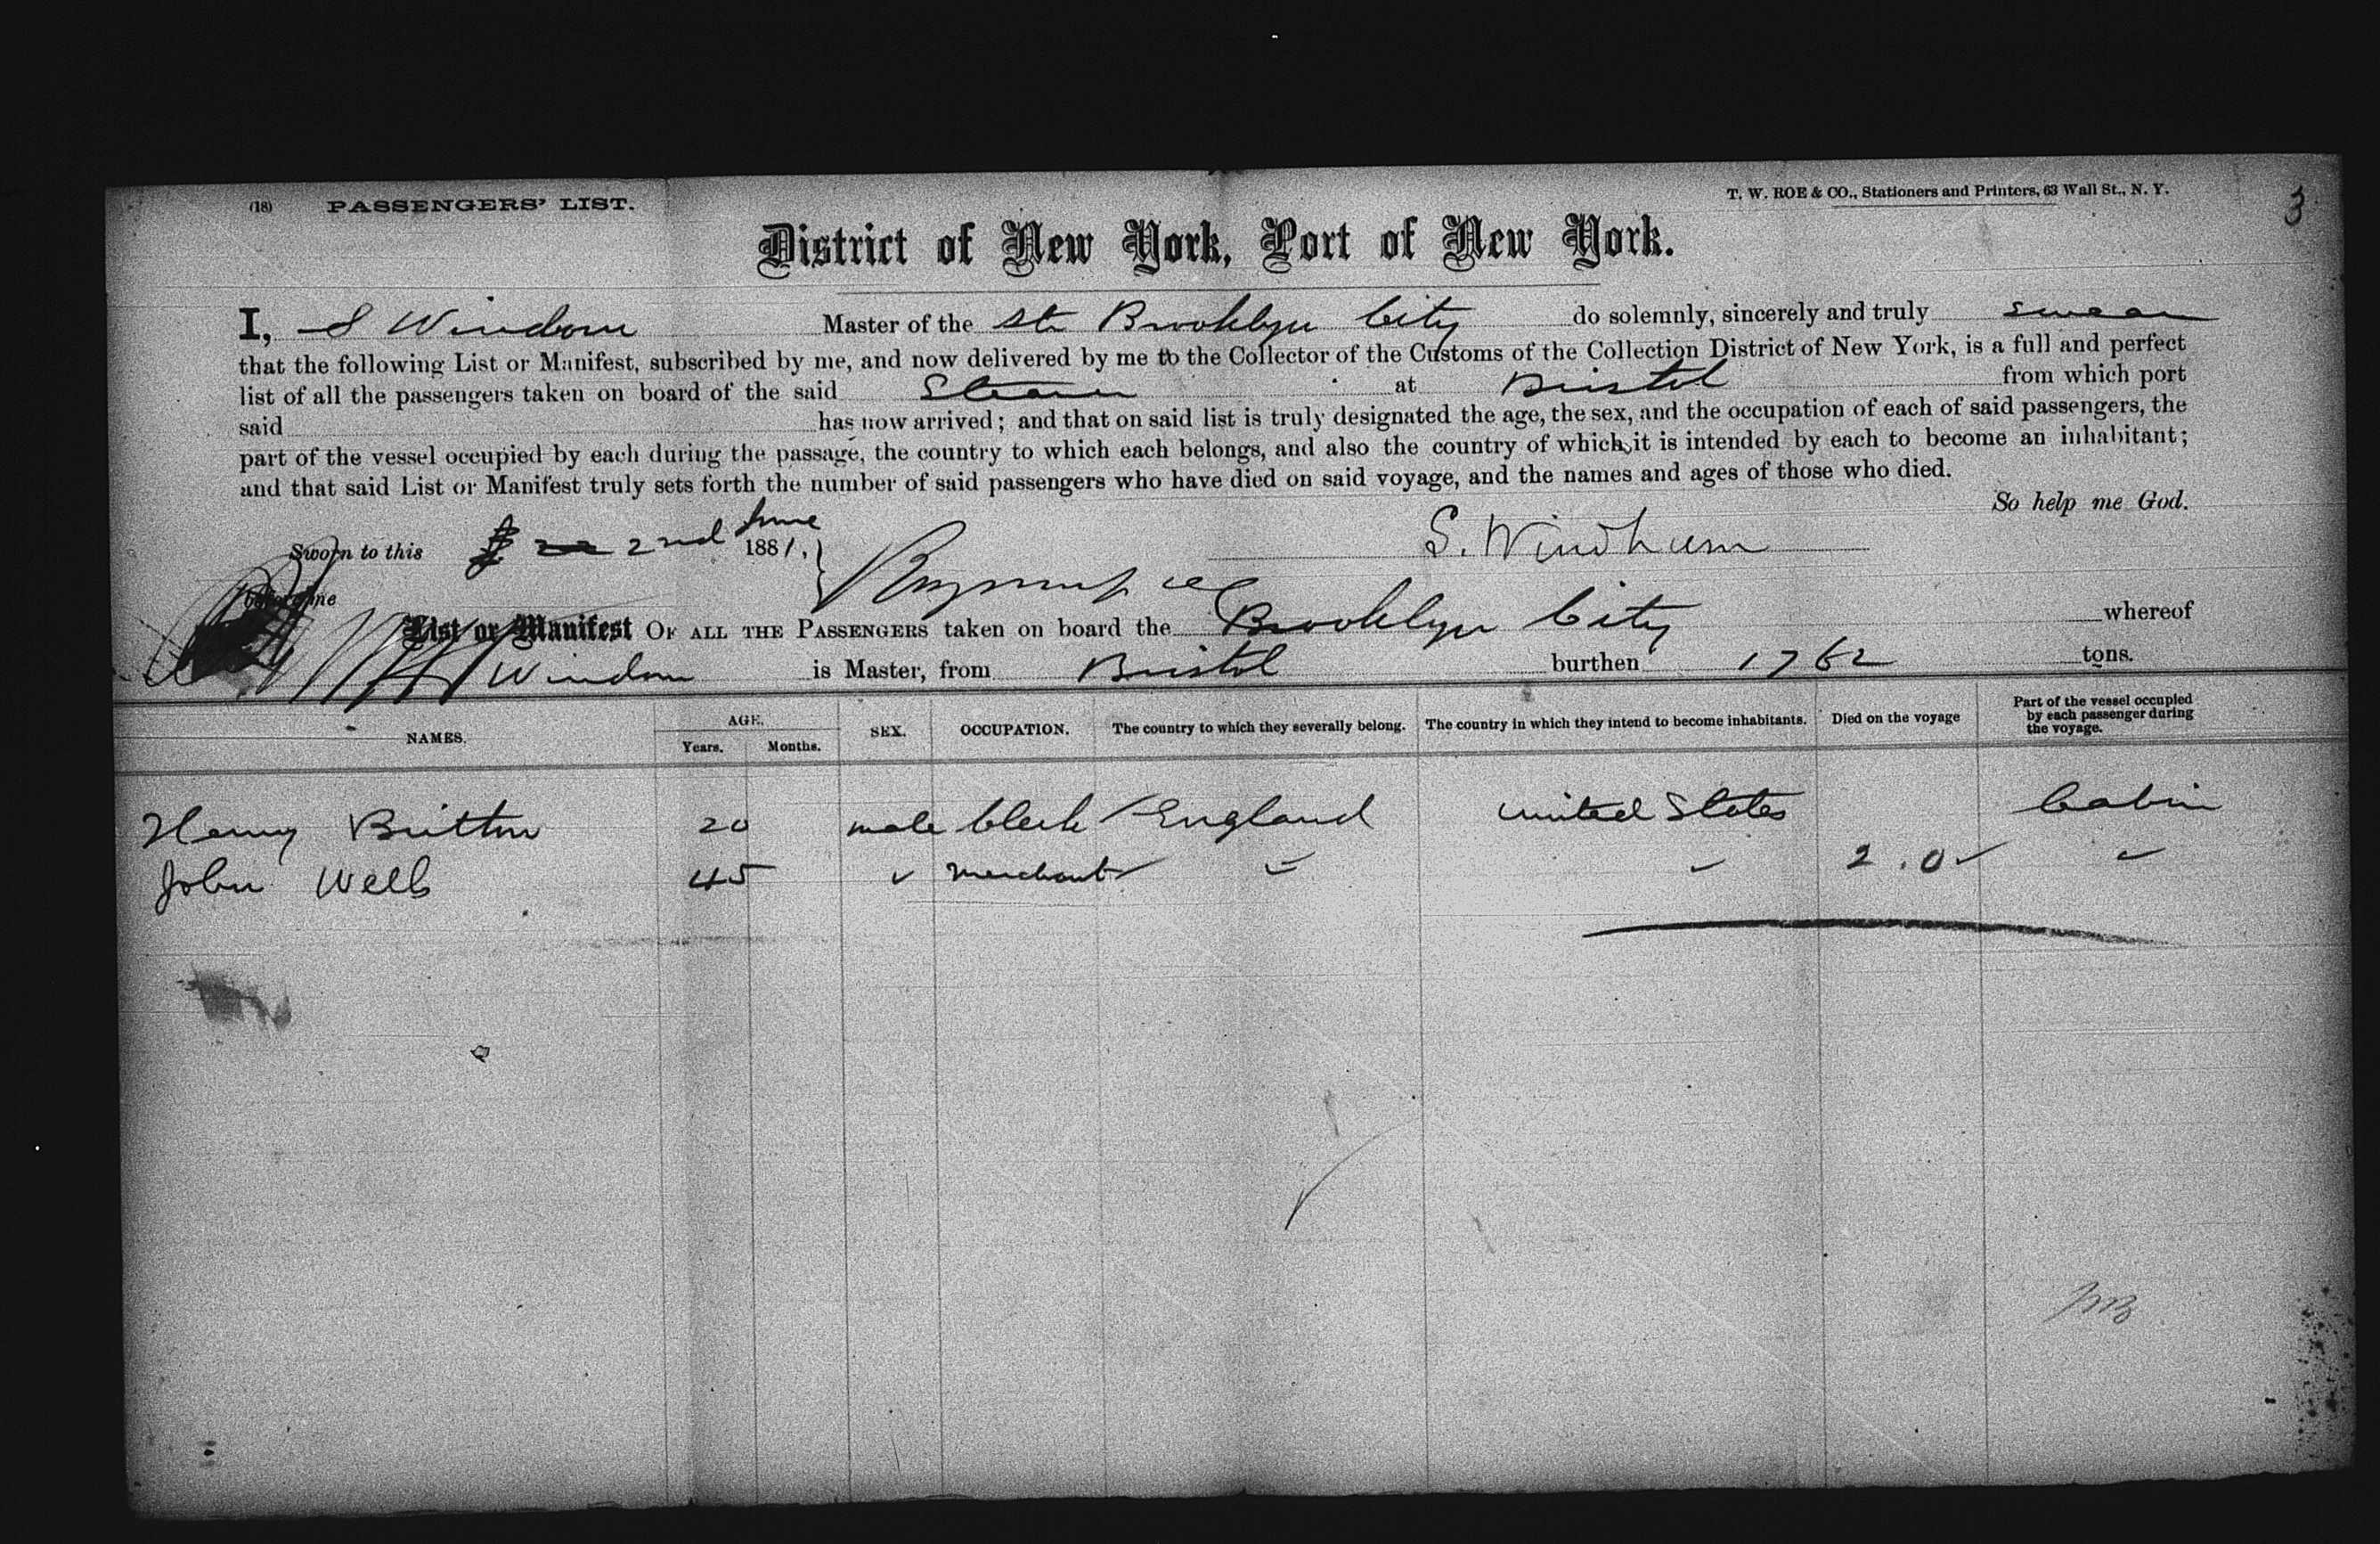 (18) PASSENGERS' LIST.
T. W. ROE & CO., Stationers and Printers, 63 Wall St., N. Y.
3
District of New York, Port of New York.
I, S Windom Master of the Str Brooklyn City do solemnly, sincerely and truly swear
that the following List or Manifest, subscribed by me, and now delivered by me to the Collector of the Customs of the Collection District of New York, is a full and perfect
list of all the passengers taken on board of the said Steamer at Bristol from which port
said has now arrived; and that on said list is truly designated the age, the sex, and the occupation of each of said passengers, the
part of the vessel occupied by each during the passage, the country to which each belongs, and also the country of which it is intended by each to become an inhabitant;
and that said List or Manifest truly sets forth the number of said passengers who have died on said voyage, and the names and ages of those who died.
So help me God.
Sworn to this 2nd June 1881,
S. Windham
before me
List or Manifest OF ALL THE PASSENGERS taken on board the Brooklyn City whereof
Windom is Master, from Bristol burthen 1762 tons.
NAMES. AGE. Years. Months. SEX. OCCUPATION. The country to which they severally belong. The country in which they intend to become inhabitants. Died on the voyage Part of the vessel occupied by each passenger during the voyage.
Henry Britton 20 male Clerk England United States Cabin
John Webb 45 " merchant " " 2.0 "